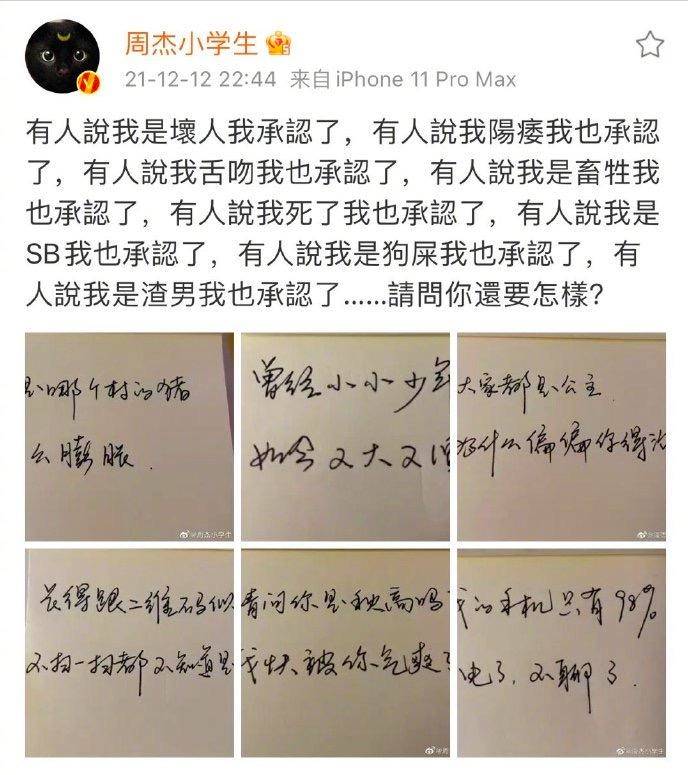 周杰小学生
21-12-12 22:44 来自 iPhone 11 Pro Max
有人說我是壞人我承認了，有人說我陽痿我也承認
了，有人說我舌吻我也承認了，有人說我是畜牲我
也承認了，有人說我死了我也承認了，有人說我是
SB我也承認了，有人說我是狗屎我也承認了，有
人說我是渣男我也承認了……請問你還要怎樣？
是哪个村的猪
么膨胀.
@周杰小学生
曾经小小少年
如今又大又
大家都是公主
为什么偏偏你得
长得跟二维码似
不扫一扫都不知道是
请问你是秋高吗
我快被你气爽了
我的手机只有98%
电了，不聊了.
@周杰小学生